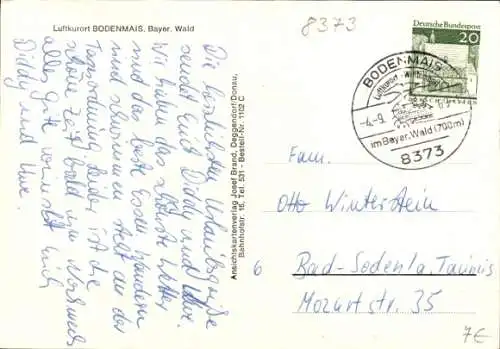 Luftkurort BODENMAIS, Bayer. Wald
8373
Die herzlichsten Urlaubsgrüße
sendet Euch Diddy und Uwe.
Wir haben das schönste Wetter
und das beste Essen. Wandern
und schwimmen steht an der
Tagesordnung. Leider ist die
schöne Zeit bald um. Nochmals
alles Gute wünscht Euch
Diddy und Uwe.
Ansichtskartenverlag Josef Brand, Deggendorf/Donau,
Bahnhofstr. 16, Tel. 531 - Bestell-Nr. 1152 C
Deutsche Bundespost
20
BODENMAIS
Luftkurort - Wintersport
-4.-9.
im Bayer. Wald (700m)
8373
Fam.
Otto Winterstein
6 Bad-Soden/a. Taunus
Mozartstr. 35
7€